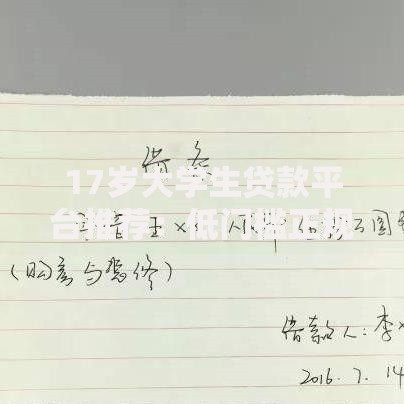 借条
17岁大学生贷款平
台推荐，低门槛正规
王× 人民币 圆
(购房与装修)
借款人:李×
2016.7.14